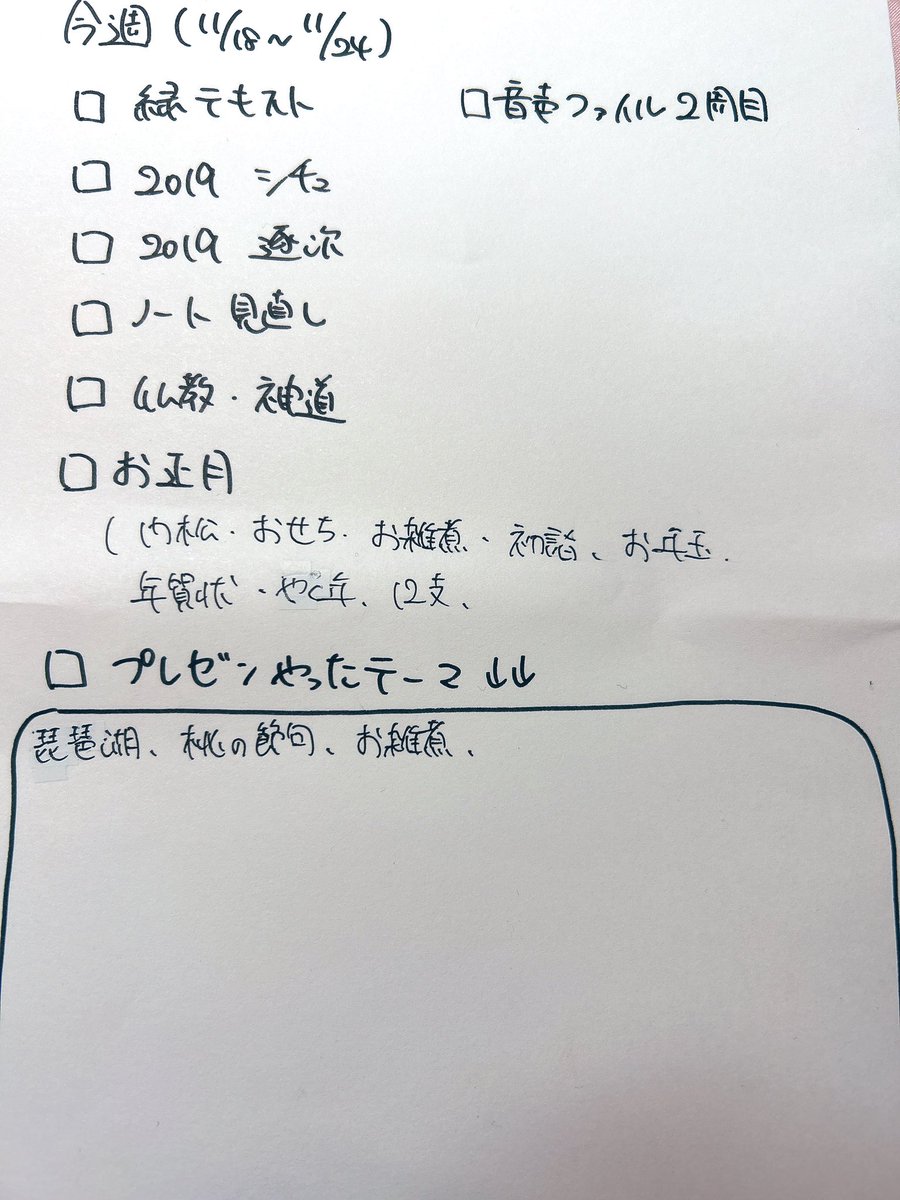 今週 (11/18~11/24)
□ 緑テキスト
□ 音声ファイル2周目
□ 2019
□ 2019 逐次
□ ノート見直し
□ 仏教・神道
□ お正月
(門松・おせち・お雑煮・初詣、お年玉.
年賀状・やく年、12支、
□ プレゼンやったテーマ↓↓
琵琶湖、桃の節句、お雑煮、